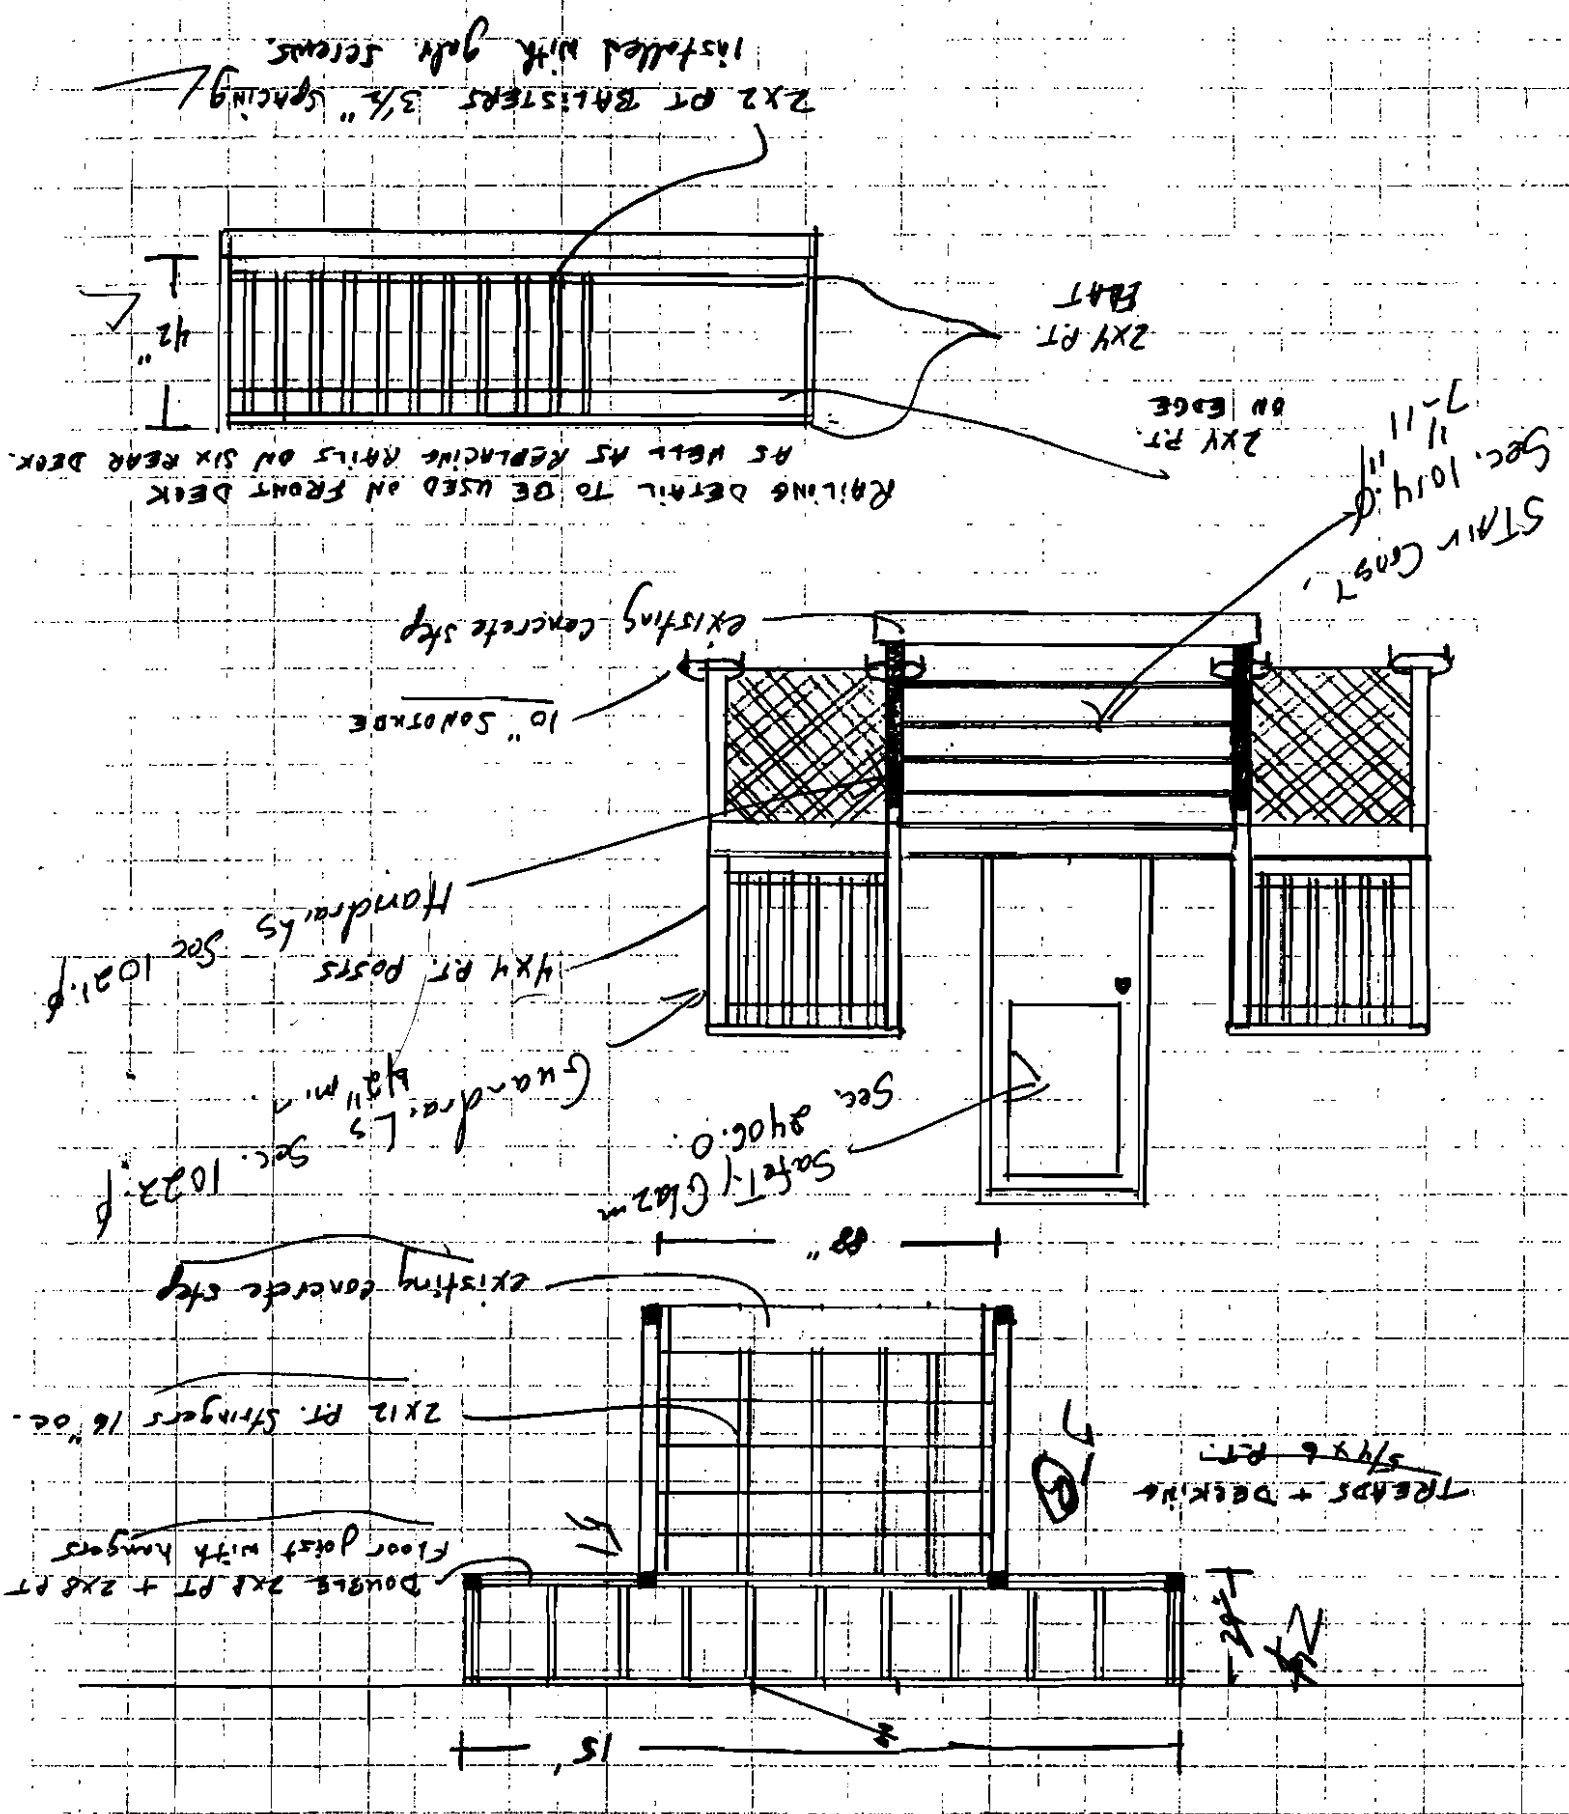 15'
DOUBLE 2x8 PT + 2x8 PT
FLOOR joist with hangers
TREADS + DECKING
5/4 x 6 P.T.
2x12 P.T. Stringers 16" oc.
existing concrete step
88"
Safety
Sec. 2406.0
Guardrails Sec. 1022.
42" min
4x4 P.T. POSTS
Handrails Sec 1021.
10" SONOTUBE
existing concrete step
STAIR Const.
Sec. 1014.
RAILING DETAIL TO BE USED ON FRONT DECK
AS WELL AS REPLACING RAILS ON SIX REAR DECK.
2x4 P.T.
ON EDGE
42"
2x4 P.T.
FLAT
2x2 PT BALISTERS 3½" SPACING
installed with galv. screws.